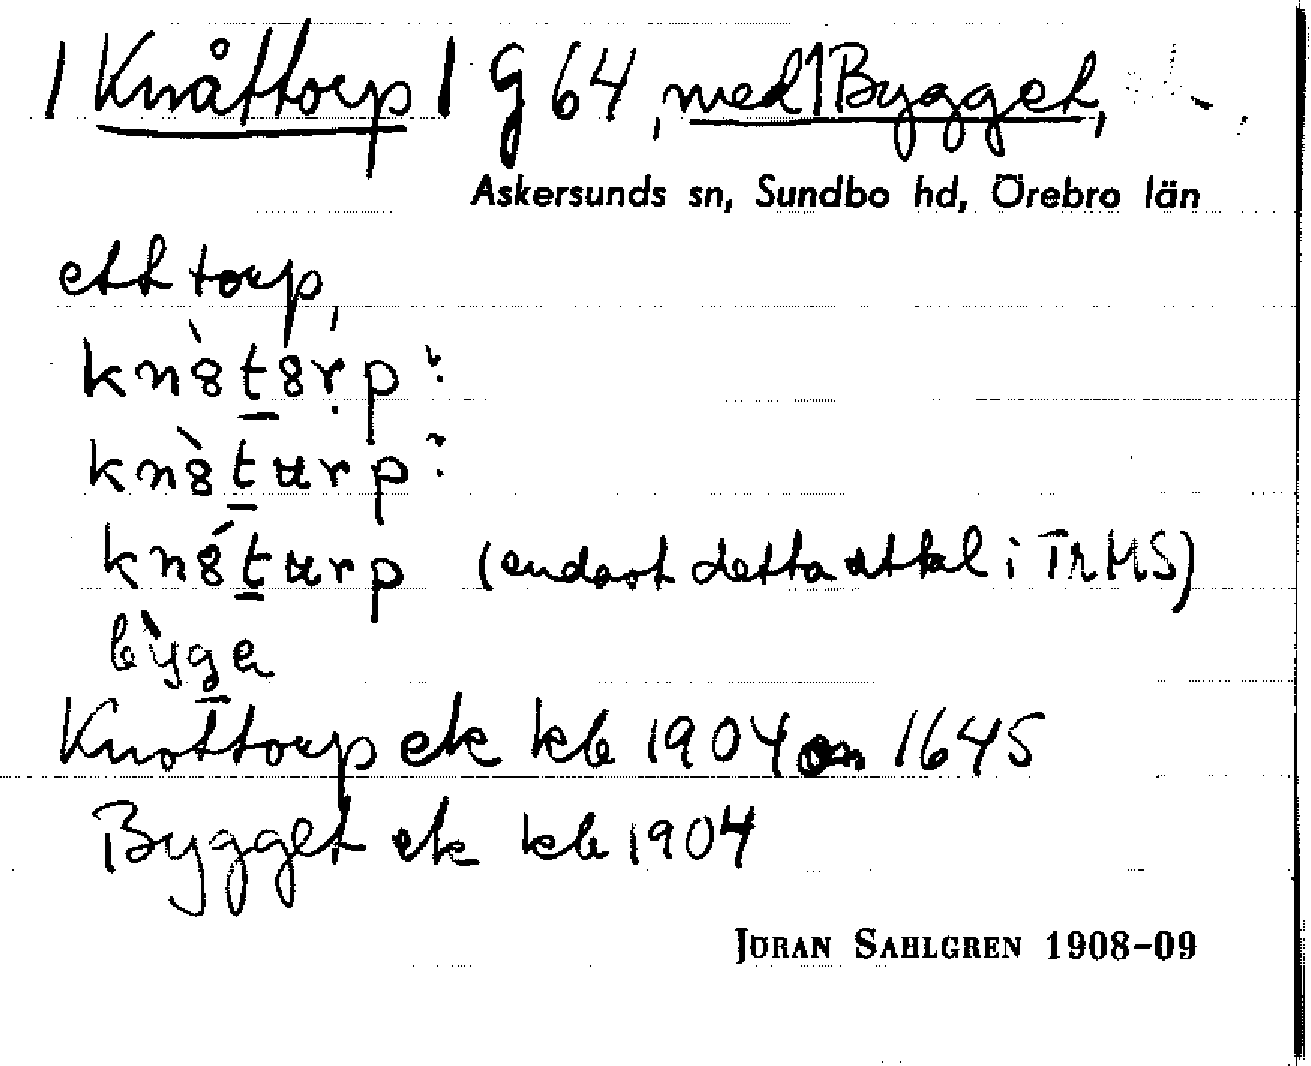 / Knåttorp / G 64, med 1 Bygget,
Askersunds sn, Sundbo hd, Örebro län
ett torp,
kn8̀t8ṛp?
kn8̀turp?
kn8́turp (endast detta uttal i TRMS)
bỳga
Knottorp ek kb 1904 on 1645
Bygget ek kb 1904
JÖRAN SAHLGREN 1908-09